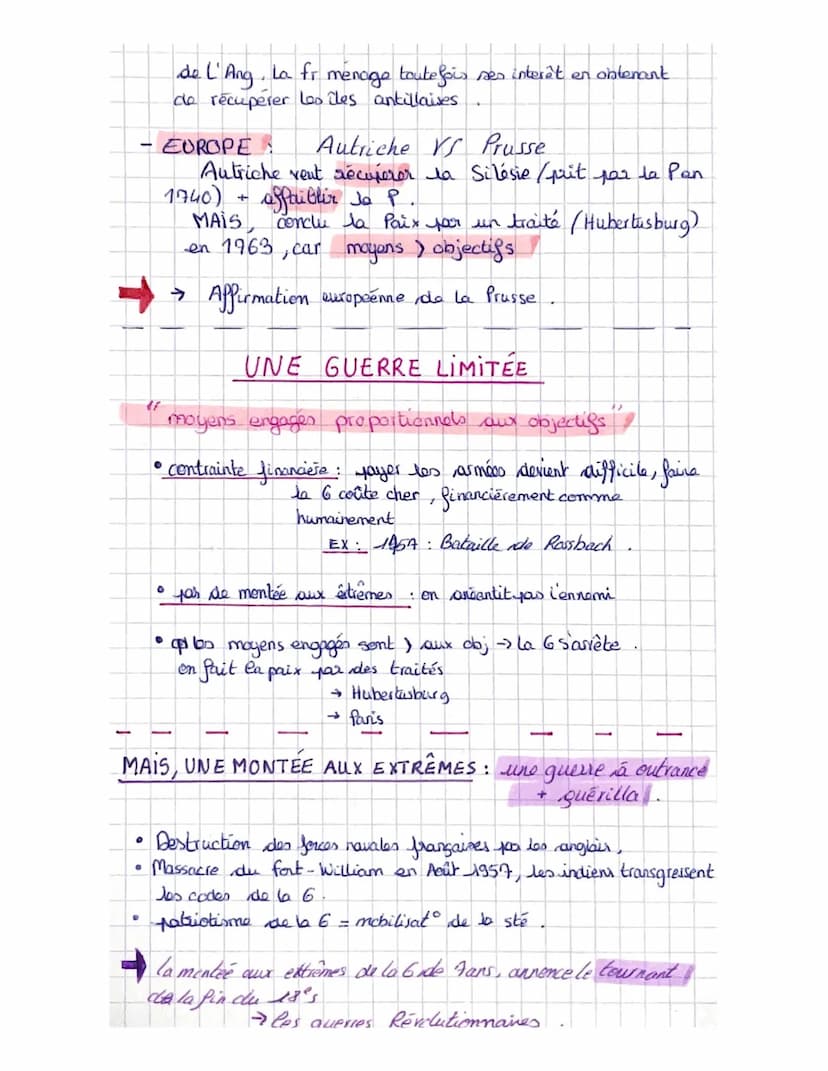 de L'Ang. La fr ménage toutefois ses interêt en obtenant
de récupérer les îles antillaises.
- EUROPE : Autriche VS Prusse
Autriche veut récupérer la Silésie (prit par la P en
1740) + affaiblir la P.
MAIS, conclu la Paix par un traité (Hubertusburg)
en 1963, car moyens > objectifs
→ Affirmation européenne de la Prusse.
UNE GUERRE LIMITÉE
"moyens engagés proportionnels aux objectifs"
• contrainte financière : payer les armées devient difficile, faire
la G coûte cher, financièrement comme
humainement
EX : 1957 : Bataille de Rossbach.
• pas de montée aux extrêmes : on anéantit pas l'ennemi
• qd les moyens engagés sont > aux obj → la G s'arrête.
on fait la paix par des traités
→ Hubertusburg
→ Paris
MAIS, UNE MONTÉE AUX EXTRÊMES : une guerre à outrance
+ guérilla.
• Destruction des forces navales françaises par les anglais,
• Massacre du fort-William en Août 1957, les indiens transgressent
les codes de la G.
• patriotisme de la G = mobilisat° de la sté.
la montée aux extrêmes de la G de 7ans, annonce le tournant
de la fin du 18e s
→ les guerres Révolutionnaires.